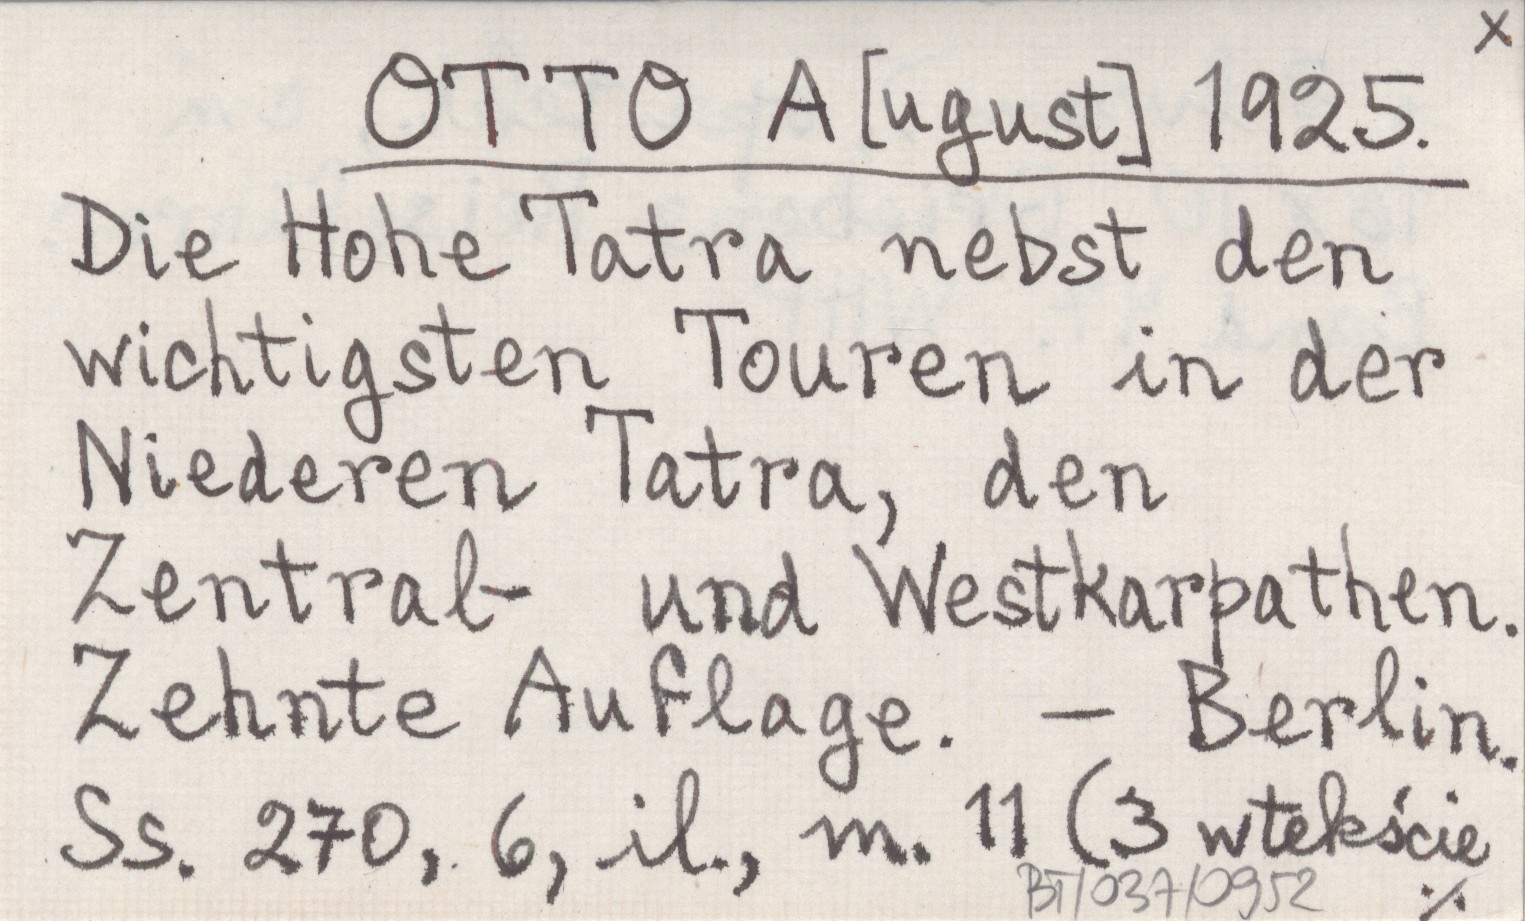 x
OTTO A[ugust] 1925.
Die Hohe Tatra nebst den
wichtigsten Touren in der
Niederen Tatra, den
Zentral- und Westkarpathen.
Zehnte Auflage. – Berlin.
Ss. 270, 6, il., m. 11 (3 w tekście
BT/037/0952 ./.